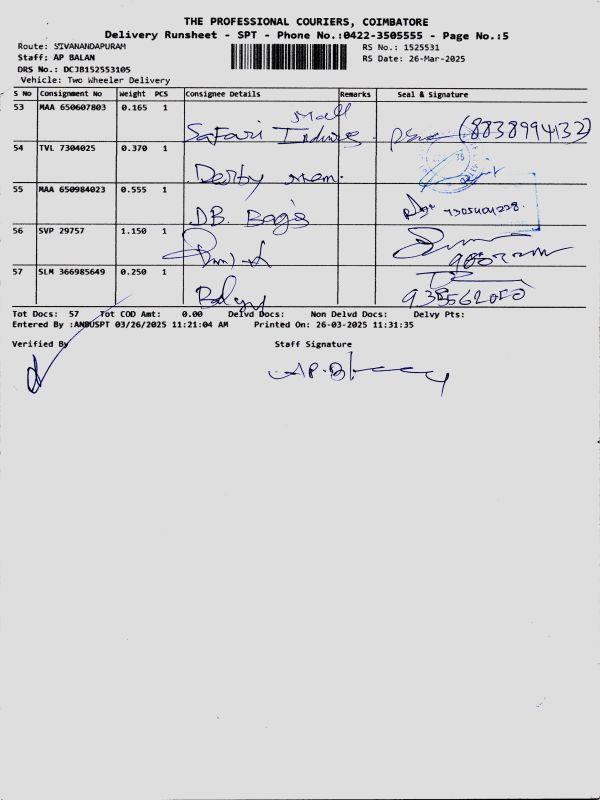 THE PROFESSIONAL COURIERS, COIMBATORE
Delivery Runsheet - SPT - Phone No.:0422-3505555 - Page No.:5
Route: SIVANANDAPURAM RS No.: 1525531
Staff: AP BALAN RS Date: 26-Mar-2025
DRS No.: DCJB152553105
Vehicle: Two Wheeler Delivery
S No Consignment No Weight PCS Consignee Details Remarks Seal & Signature
53 MAA 650607803 0.165 1
Mall
Safari (8838994132)
54 TVL 7304025 0.370 1
Derby men.
55 MAA 650984023 0.555 1
DB. Bags
56 SVP 29757 1.150 1
57 SLM 366985649 0.250 1
Tot Docs: 57 Tot COD Amt: 0.00 Delvd Docs: Non Delvd Docs: Delvy Pts:
Entered By :ANBUSPT 03/26/2025 11:21:04 AM Printed On: 26-03-2025 11:31:35
Verified By Staff Signature